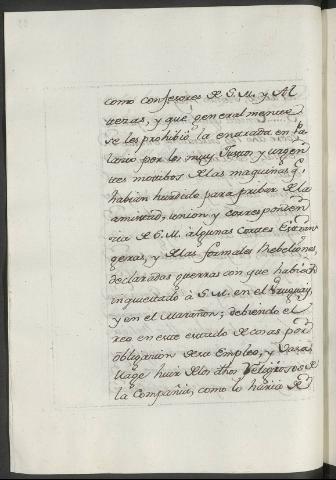 como confesores de S. M. y Al
tezas, y que generalmente
se les prohibió la entrada en Pa
lacio por los muy Justos, y urgen
tes motibos de las maquinas q.e
habian hurdido para pribar de la
amistad, union y corresponden
cia de S. M. algunas cortes Extran
geras, y de las formales rebeliones,
declaradas guerras con que habian
inquietado á S. M. en el Uruguay,
y en el Marañon; debiendo el
reo en este estado de cosas por
obligacion de su Empleo, y Vasa
llage huir de los dhos Religiosos de
la Compañia, como lo haria de